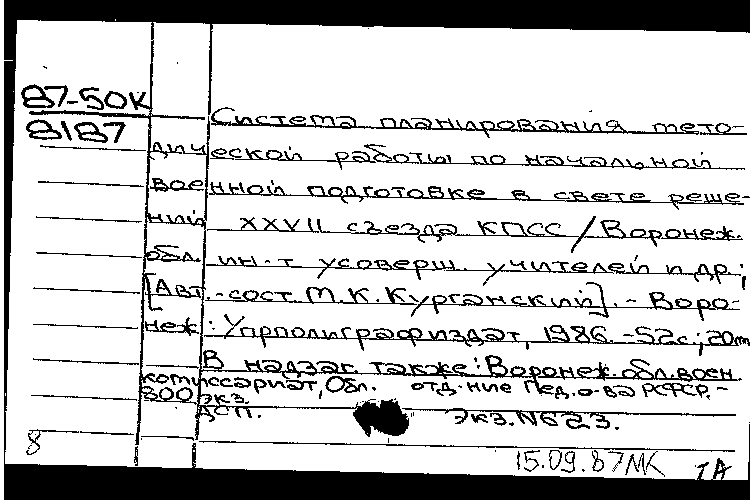 87-50К
8187
Система планирования мето-
дической работы по начальной
военной подготовке в свете реше-
ний XXVII съезда КПСС / Воронеж.
обл. ин-т усоверш. учителей и др.;
[Авт.-сост. М.К.Курганский]. - Воро-
неж: Упрполиграфиздат, 1986. -52с.; 20см
В надзаг. также: Воронеж. обл. воен.
комиссариат, Обл. отд-ние Пед. о-ва РСФСР. -
800 экз.
ДСП. Экз. №623.
8
15.09.87МК ТА